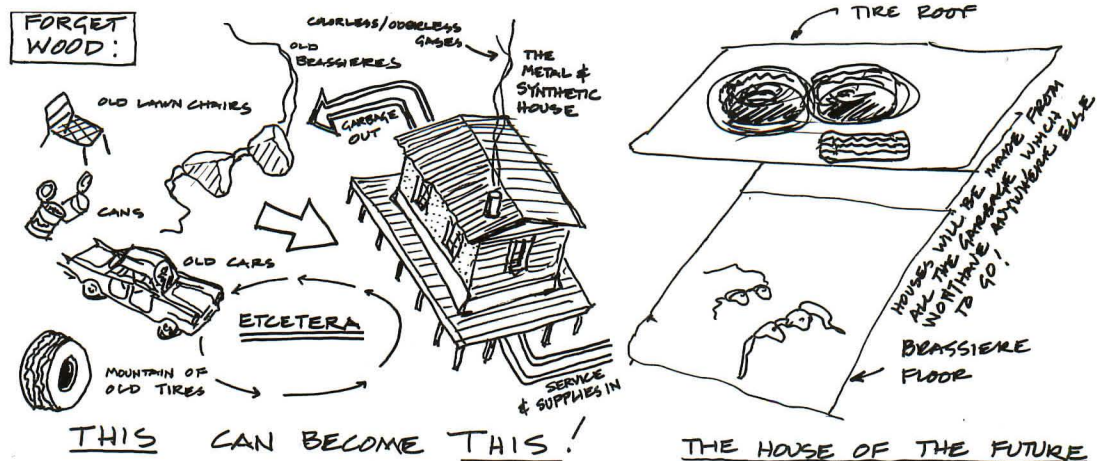 FORGET
WOOD:
OLD LAWN CHAIRS
CANS
OLD CARS
ETCETERA
MOUNTAIN OF
OLD TIRES
OLD
BRASSIERES
COLORLESS/ODORLESS
GASES
THE
METAL &
SYNTHETIC
HOUSE
GARBAGE
OUT
SERVICE
& SUPPLIES IN
THIS CAN BECOME THIS!
TIRE ROOF
HOUSES WILL BE MADE FROM
ALL THE GARBAGE WHICH
WONT HAVE ANYWHERE ELSE
TO GO!
BRASSIERE
FLOOR
THE HOUSE OF THE FUTURE